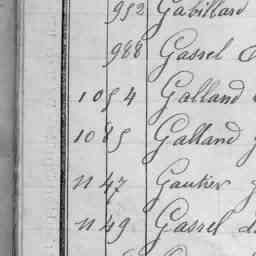 952 Gabillard
988 Gassel
1054 Galland
1085 Galland
1147 Gautier
1149 Gassel